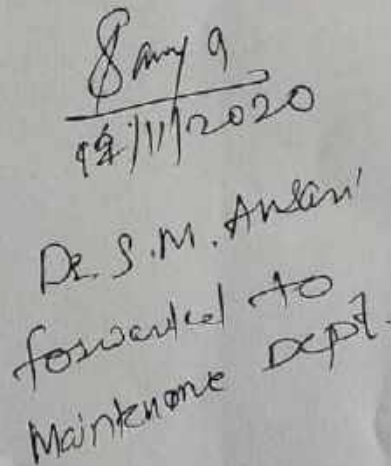 12/11/2020
Dr. S.M. Ansari
forwarded to
Maintenance Dept.